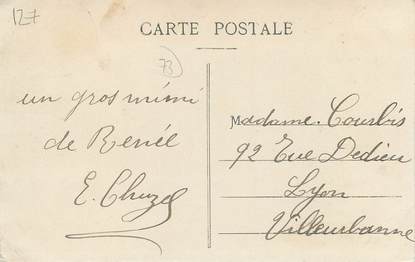 127
CARTE POSTALE
73
un gros mimi
de Renée
E. Chuzel
Madame. Courbis
92 Rue Dedieu
Lyon
Villeurbanne